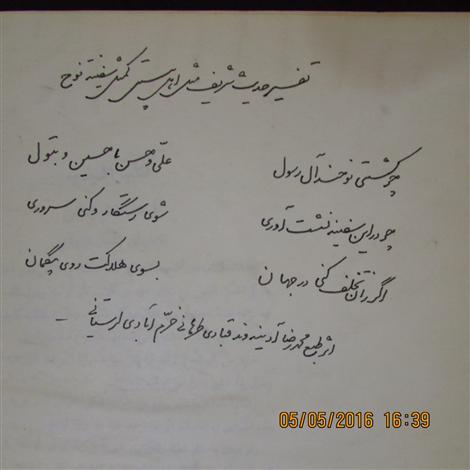 تفسیر حدیث شریف مثل اهل بیتی کمثل سفینة نوح
چو کشتی نوحند آل رسول
علی و حسن با حسین و بتول
چو در این سفینه نشست آوری
شوی رستگار و کنی سروری
اگر زان تخلف کنی در جهان
بسوی هلاکت روی بیگمان
اثر طبع محمدرضا آدینه وند قبادی طرهانی خرم آبادی لرستانی
05/05/2016 16:39